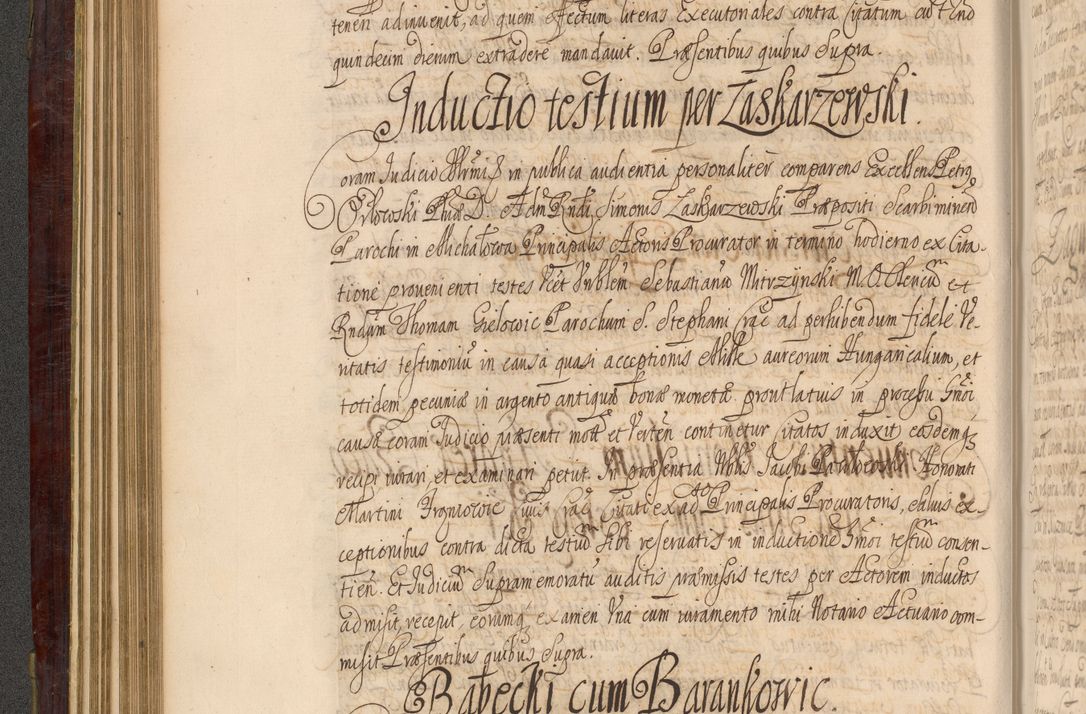 tenen adinvenit, ad quem effectum literas Executoriales contra citatum cu
quindecim dierum extradere mandavit. Præsentibus quibus Supra.
Inductio testium per Zaskarzewski.
Coram Judicio in publica audientia personaliter comparens Excellens Petrg
Orlowski Phiæ D. Adm Rndi Simonis Zaskarzewski Præpositi Scarbimirien
Parochi in Michałowa Principalis Actoris Procurator in termino hodierno ex Cita-
tione provenienti testes Sebastianū Mitrzÿnski M. O. Clericū et
Rndūm Thomam Gielowic Parochum S. Stephani Crac ad perhibendum fidele Ve-
ritatis testimoniū in causa quasi acceptionis Mille aureorum Hungaricalium, et
totidem pecuniæ in argento antiquæ bonæ monetæ prout latius in processu
causæ coram Judicio præsenti mot et Verten continetur citatos induxit eosdemq
recipi iurari et examinari petiit. In præsentia Nblis Jacobi Honorati
Martini civis Crac Citati ex ad Principalis Procuratoris, salvis ex-
ceptionibus contra dicta testiū sibi reservatis in inductione testiū consen-
tien. Et Judiciū Supramemoratū auditis præmissis testes per Actorem inductos
admisit, recepit, eorumq examen Vna cum iuramento mihi Notario Actuario com-
misit Præsentibus quibus Supra.
Bąbecki cum Barankowic.